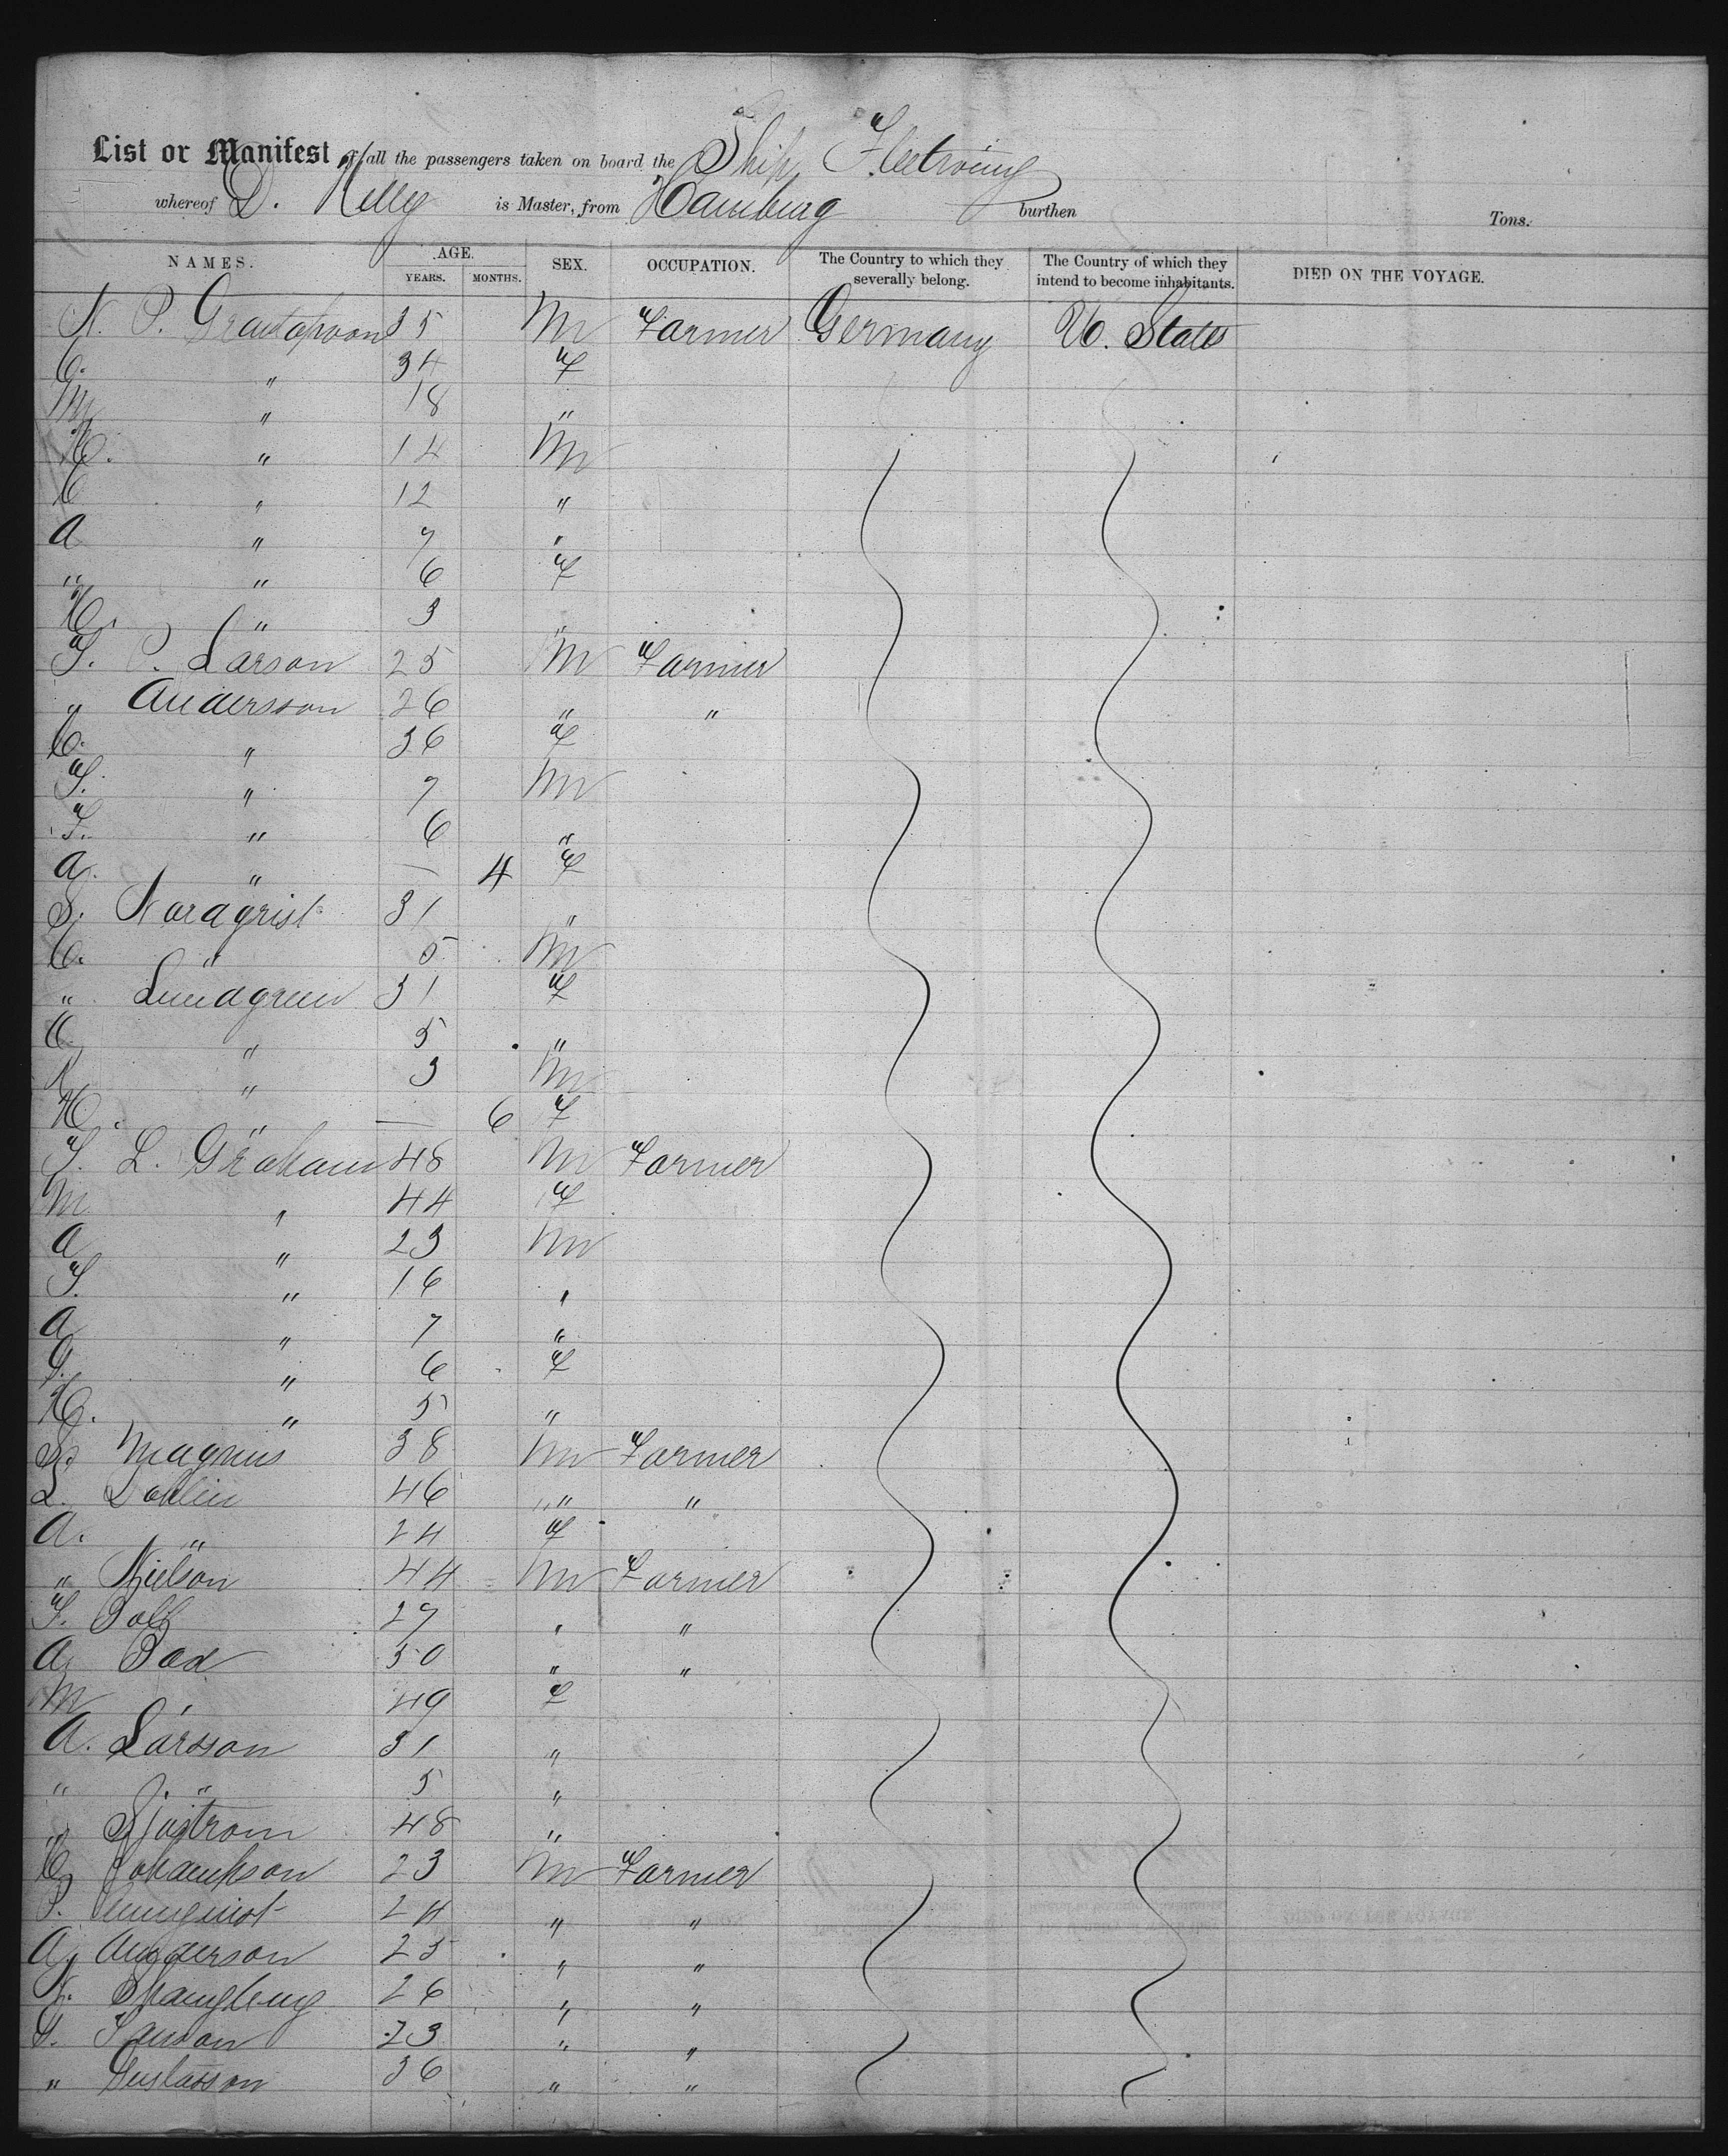 List or Manifest of all the passengers taken on board the Ship Fleetwing
whereof D. Kelly is Master, from Hamburg burthen Tons.
NAMES. AGE. YEARS. MONTHS. SEX. OCCUPATION. The Country to which they severally belong. The Country of which they intend to become inhabitants. DIED ON THE VOYAGE.
N. P. 35 M Farmer Germany U. States
C. " 34 F
M " 18 "
H. " 14 M
C " 12 "
A " 7 "
" " 6 F
H. " 3 "
J. P. Larson 25 M Farmer
" Andersson 26 " "
C. " 36 F
J. " 7 M
F. " 6 "
A. " — 4 F
S. Nordqrist 31 "
C. " 5 M
" Lundgreen 31 F
C. " 5 "
N " 3 M
H. " — 6 F
J. L. Graham 48 M Farmer
M " 44 F
A " 23 M
J. " 16 "
A " 7 "
G. " 6 F
H. " 5 "
S. Magnus 38 M Farmer
L. 46 " "
A. " 24 F
" Nielson 44 M Farmer
F. 27 " "
A. Bad 50 " "
M " 49 F
A. Larsson 31 "
" " 5 "
" Sjostrom 48 "
C. 23 M Farmer
P. 24 " "
A. Anderson 25 " "
26 " "
23 " "
" Gustasson 36 " "